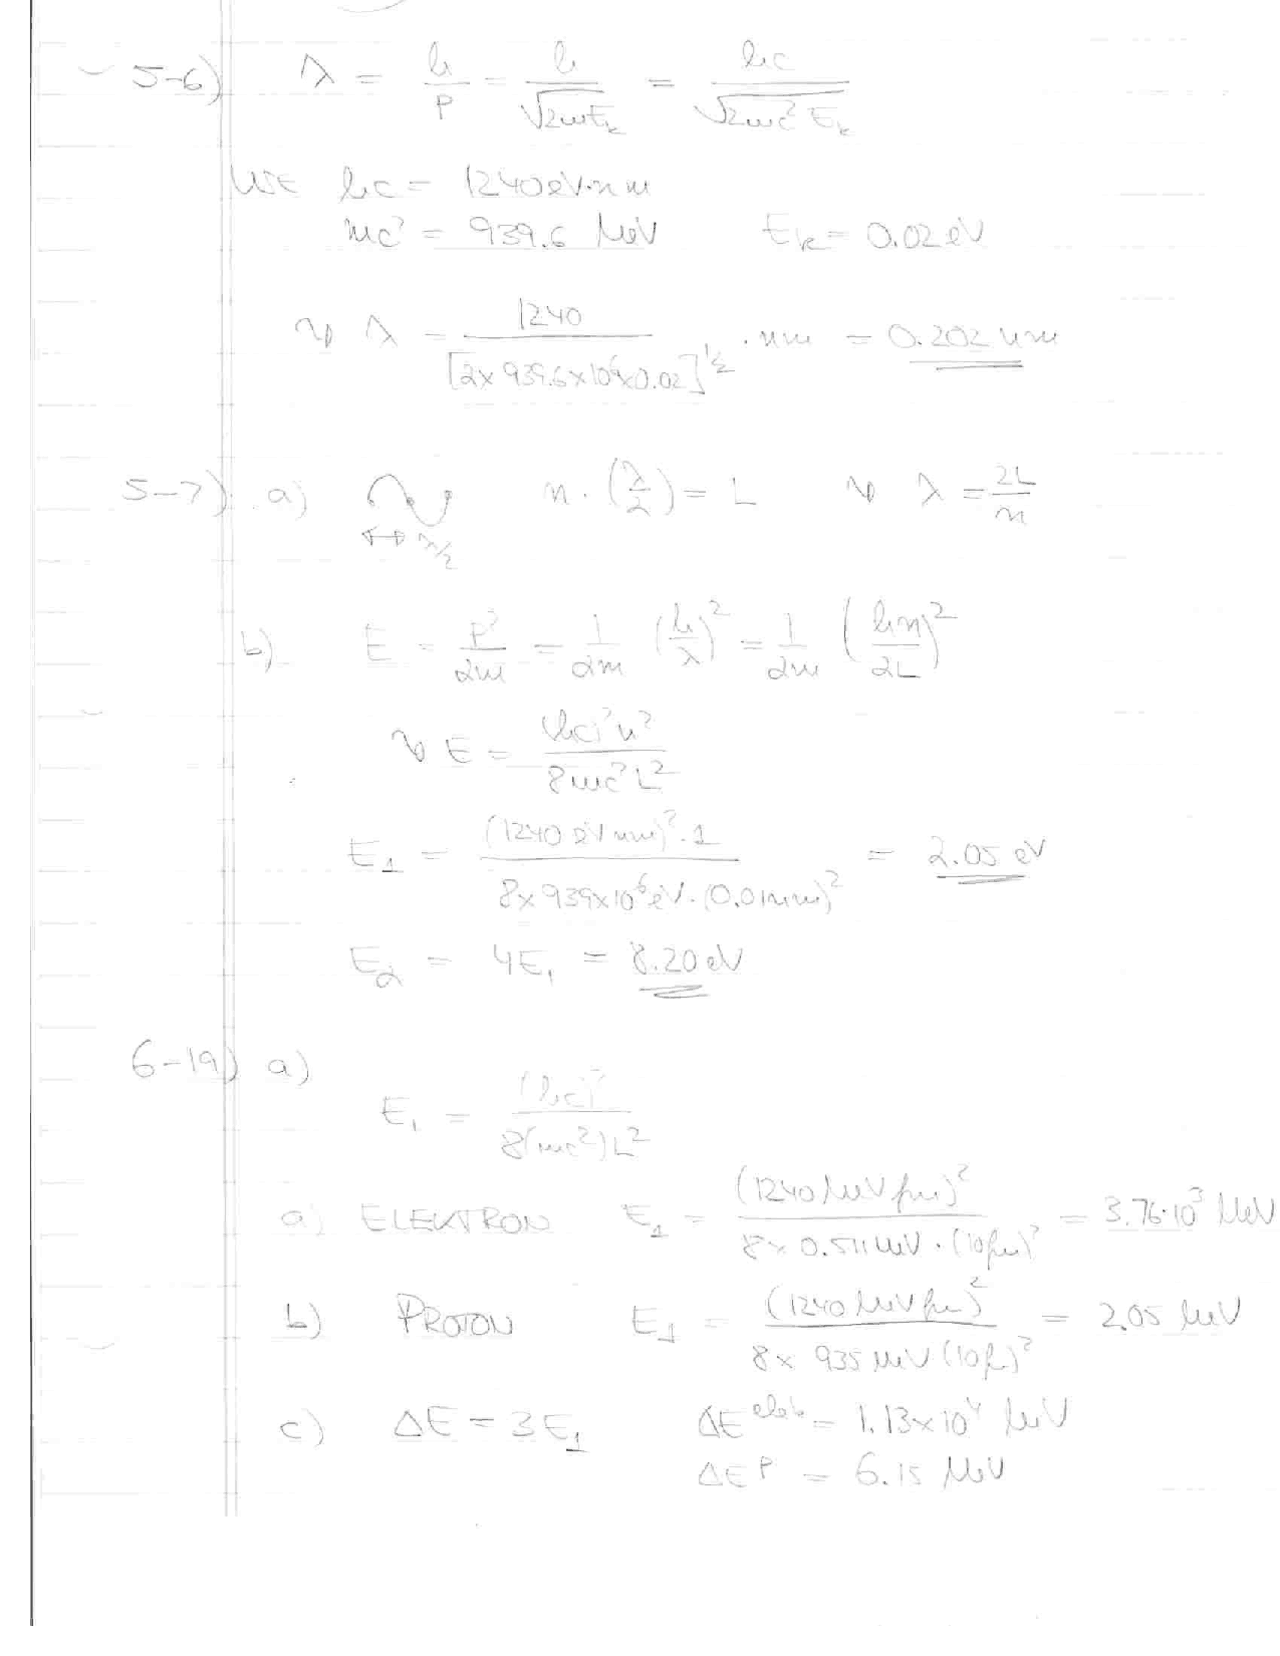 5-6) λ = h/p = h/√(2mE_k) = hc/√(2mc² E_k)
USE hc = 1240 eV·nm
mc² = 939.6 MeV E_k = 0.02 eV
⇒ λ = 1240/[2×939.6×10⁶×0.02]^½ · nm = 0.202 nm
5-7) a) n·(λ/2) = L ⇒ λ = 2L/n
↔ λ/2
b) E = p²/2m = 1/2m (h/λ)² = 1/2m (hn/2L)²
⇒ E = (hc)²n²/8mc²L²
E₁ = (1240 eV nm)²·1/8×939×10⁶eV·(0.01nm)² = 2.05 eV
E₂ = 4E₁ = 8.20 eV
6-19) a)
E₁ = (hc)²/8(mc²)L²
a) ELEKTRON E₁ = (1240 MeV fm)²/8×0.511 MeV·(10fm)² = 3.76·10³ MeV
b) PROTON E₁ = (1240 MeV fm)²/8×935 MeV(10f)² = 2.05 MeV
c) ΔE = 3E₁ ΔE^elek = 1.13×10⁴ MeV
ΔE^P = 6.15 MeV